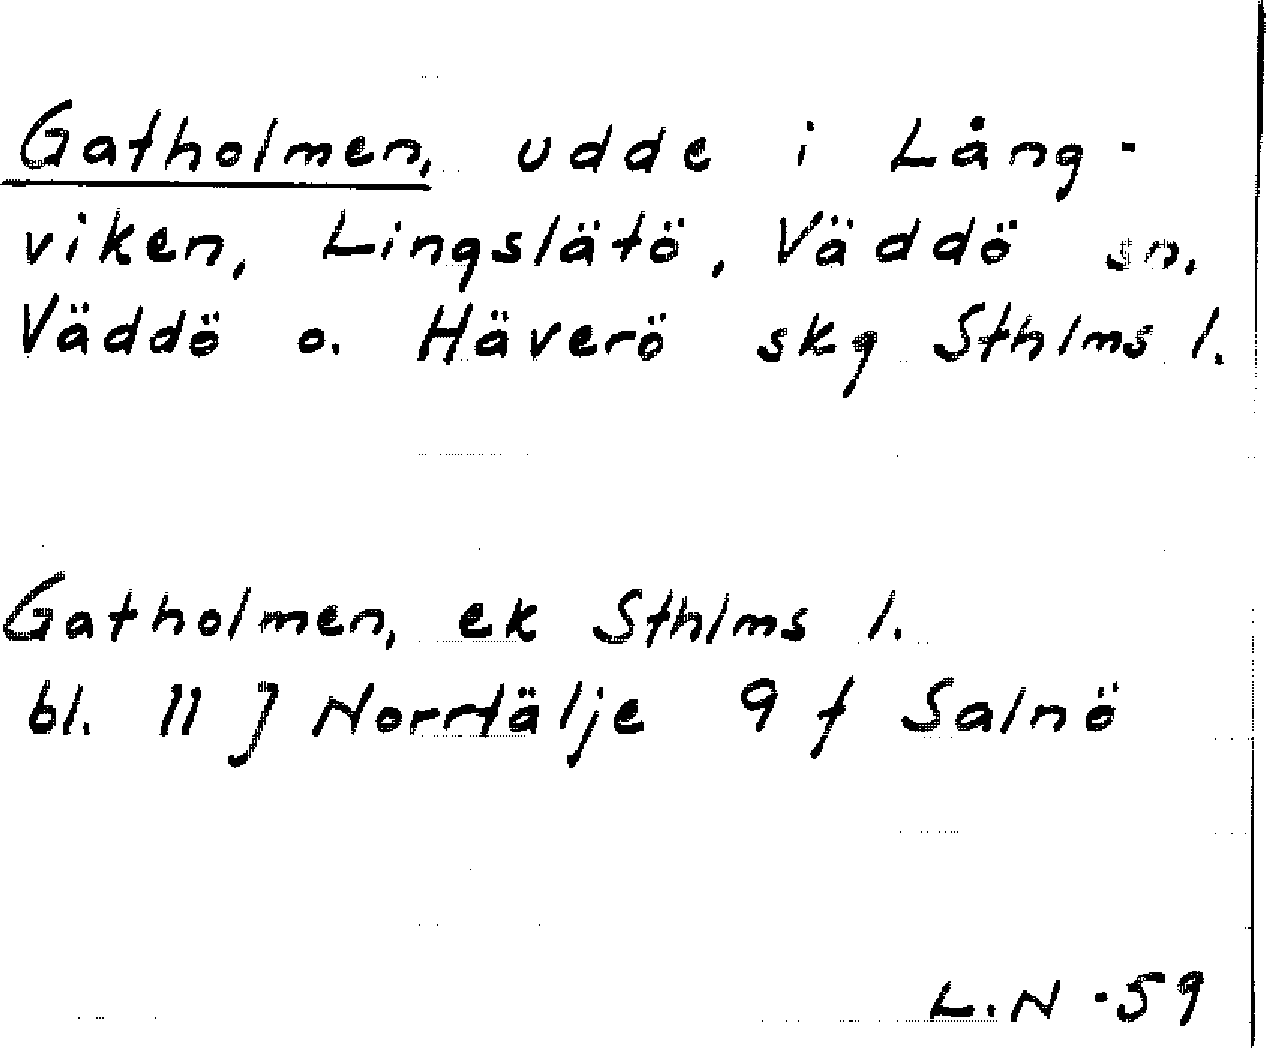 Gatholmen, udde i Lång-
viken, Lingslätö, Väddö sn,
Väddö o. Häverö skg Sthlms l.
Gatholmen, ek Sthlms l.
bl. 11 J Norrtälje 9 f Salnö
L.N -59